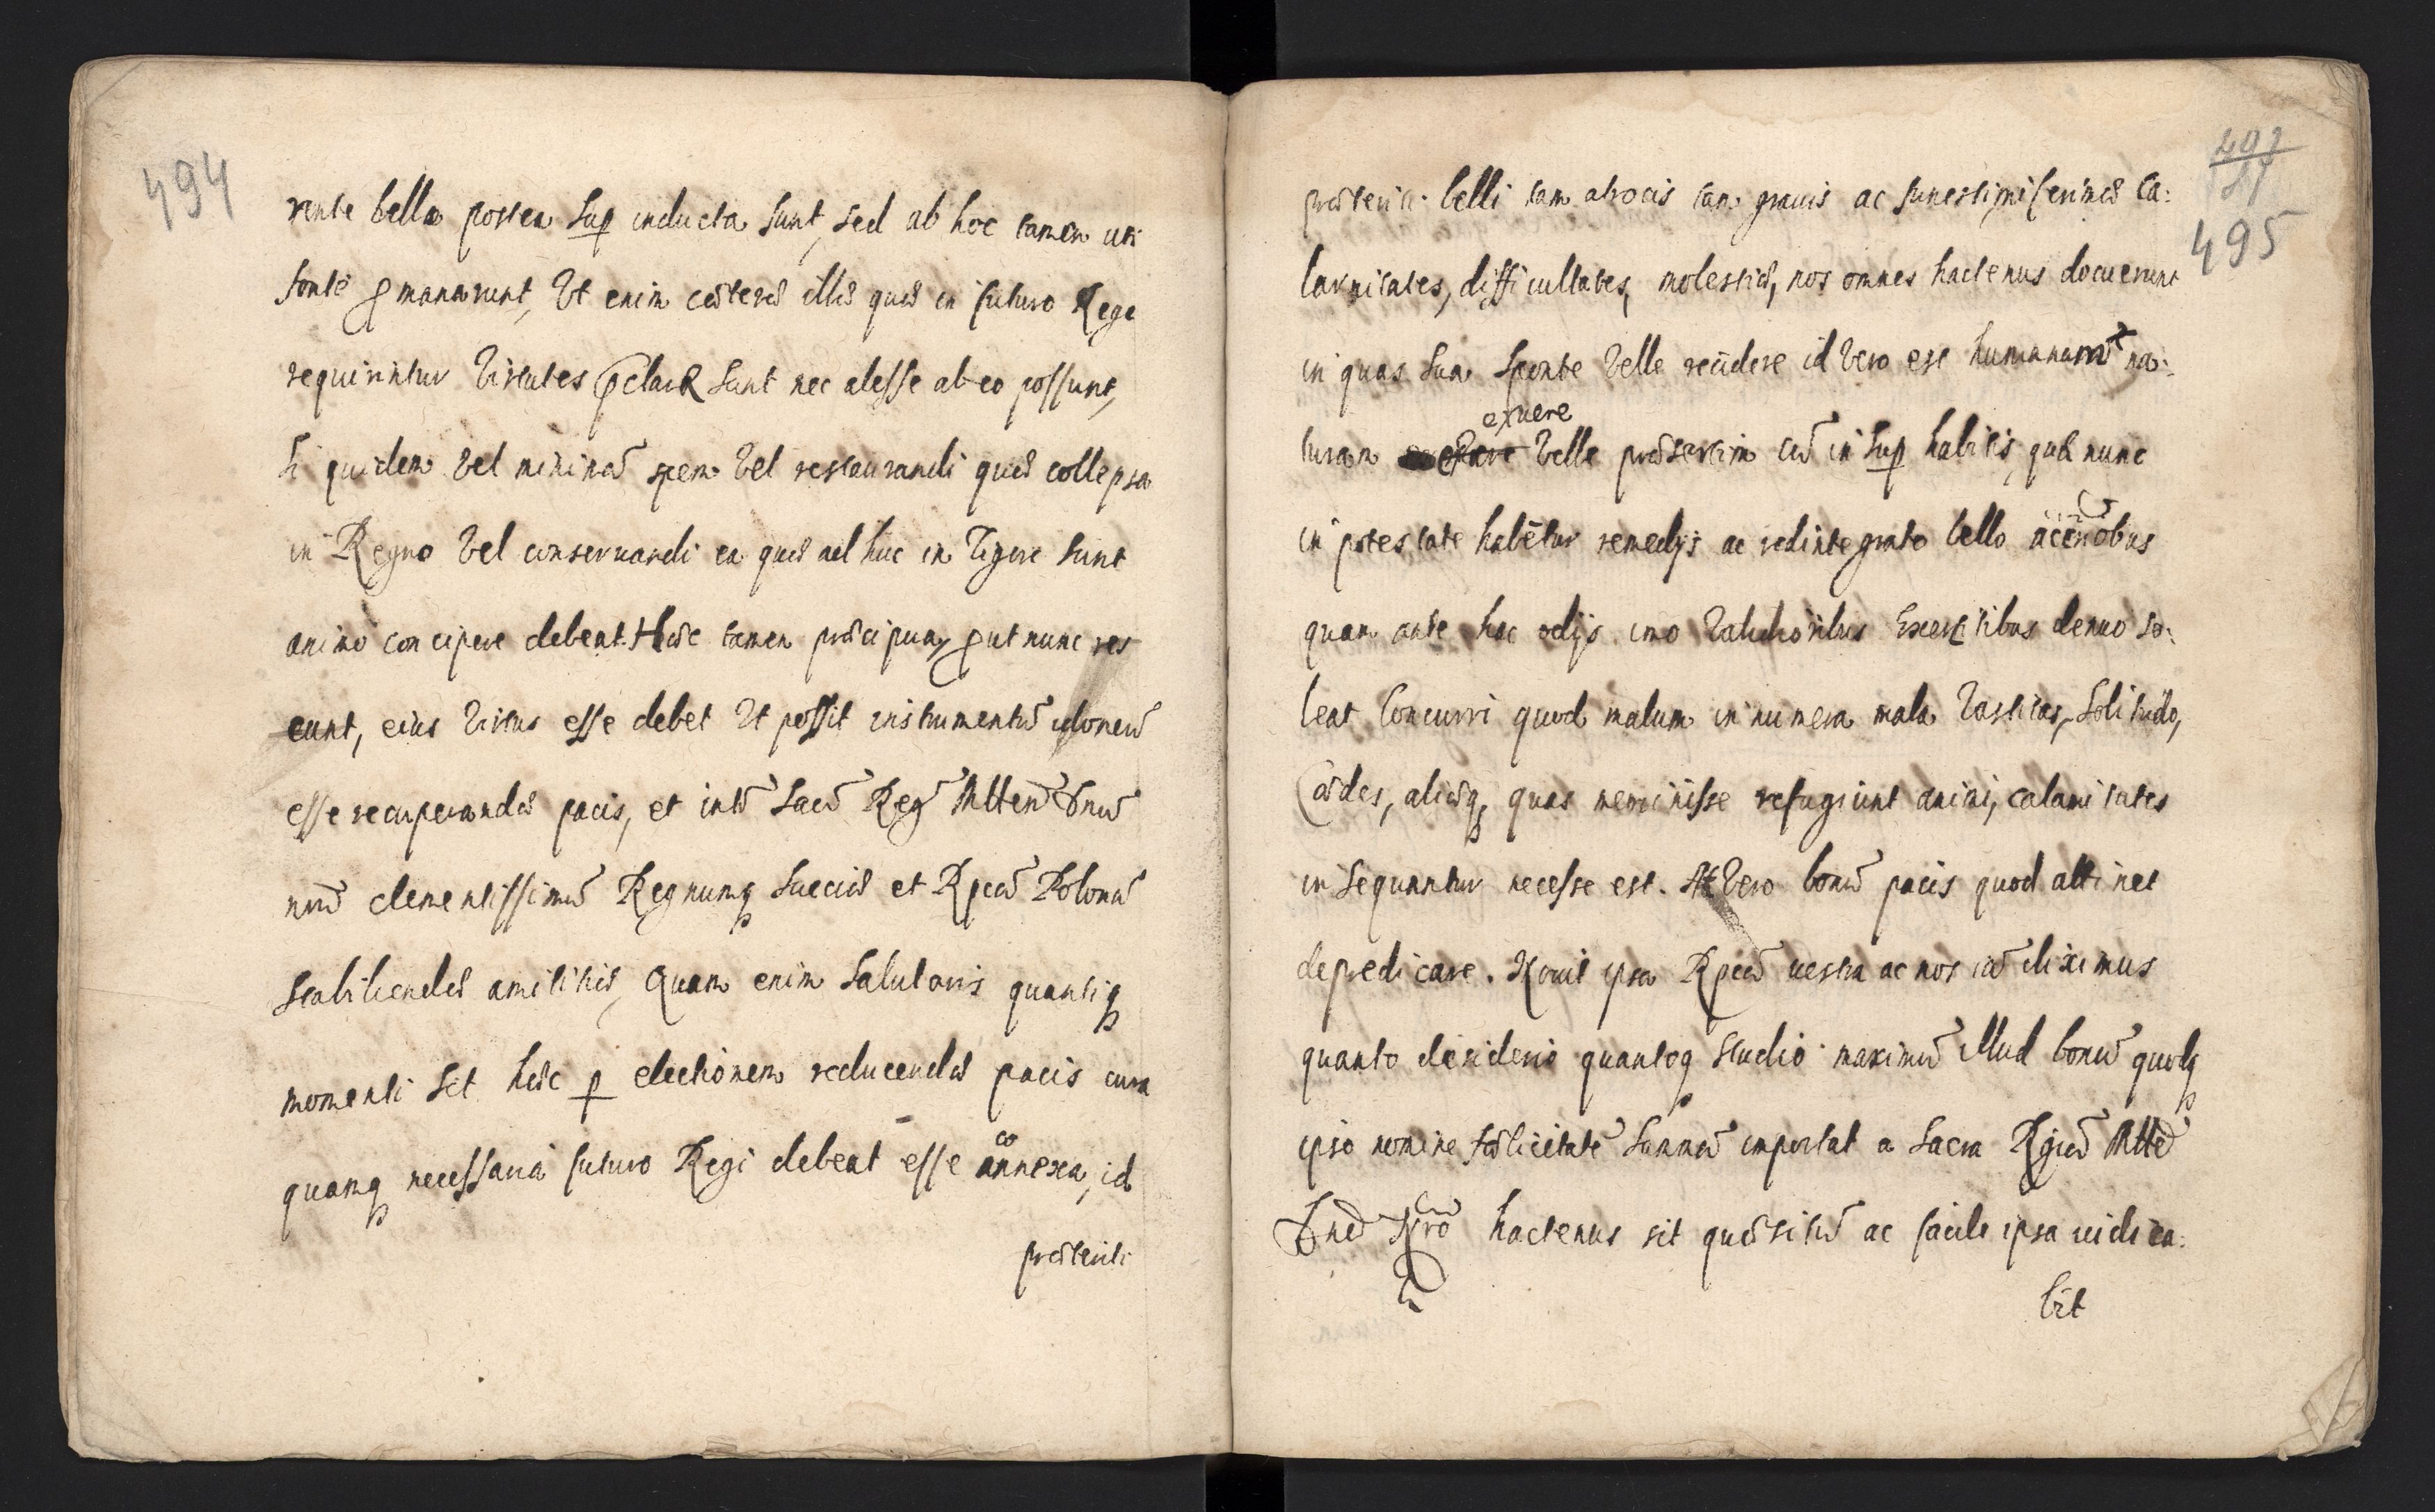 494
rente bello postea sup inducta sunt, sed ab hoc tamen uti
fonte ꝓmanarunt, Vt enim cæteræ illæ quæ in futuro Rege
requiruntur Virtutes p̃claræ sunt nec abesse ab eo possunt,
si quidem vel minimã spem vel restaurandi quæ collapsa
in Regno vel conseruandi ea quæ ad huc in Vigore sunt
animo concipere debeat. Hæc tamen præcipua, ꝓut nunc res
eunt, eius Virtus esse debet Vt possit instrumentũ idoneũ
esse recuperandæ pacis, et intr̃ Sacr̃ Reg̃ Mttem̃ Dnũ
nr̃ũ clementissimũ Regnumq Sueciæ et Rpcã Polonã
stabiliendæ amicitiæ, Quam enim salutaris quantiq
momenti sit hæc ꝑ electionem reducendæ pacis cura
quamq necessaria futuro Regi debeat esse co annexa, id
præteriti
495
præteriti belli tam atrocis tam grauis ac funesti, miserimæ ca:
lamitates, difficultates, molestiæ, nos omnes hactenus docuerunt
in quas sua sponte velle recidere id vero est humanam na:
exuere
turam velle præsertim cũ in sup habitis, quæ nunc
in potestate habẽtur remedijs ac redintegrato bello acerioribus
quam ante hac odijs imo Validioribus Exercitibus denuo so:
leat Concurri quod malum innumera mala Vastitas, Solitudo,
Cædes, aliæq, quas meminisse refugiunt animi, calamitates
insequantur necesse est. At Vero bonũ pacis quod attinet
depredicare. Nouit ipsa Rpcã uestra ac nos iã diximus
quanto desiderio quantoq studio maximũ illud bonũ quodq
ipso nomine fælicitatẽ summã importat a Sacra Rgiã Mttẽ
Dnõ Nr̃o hactenus sit quæsitũ ac facile ipsa iudica:
bit